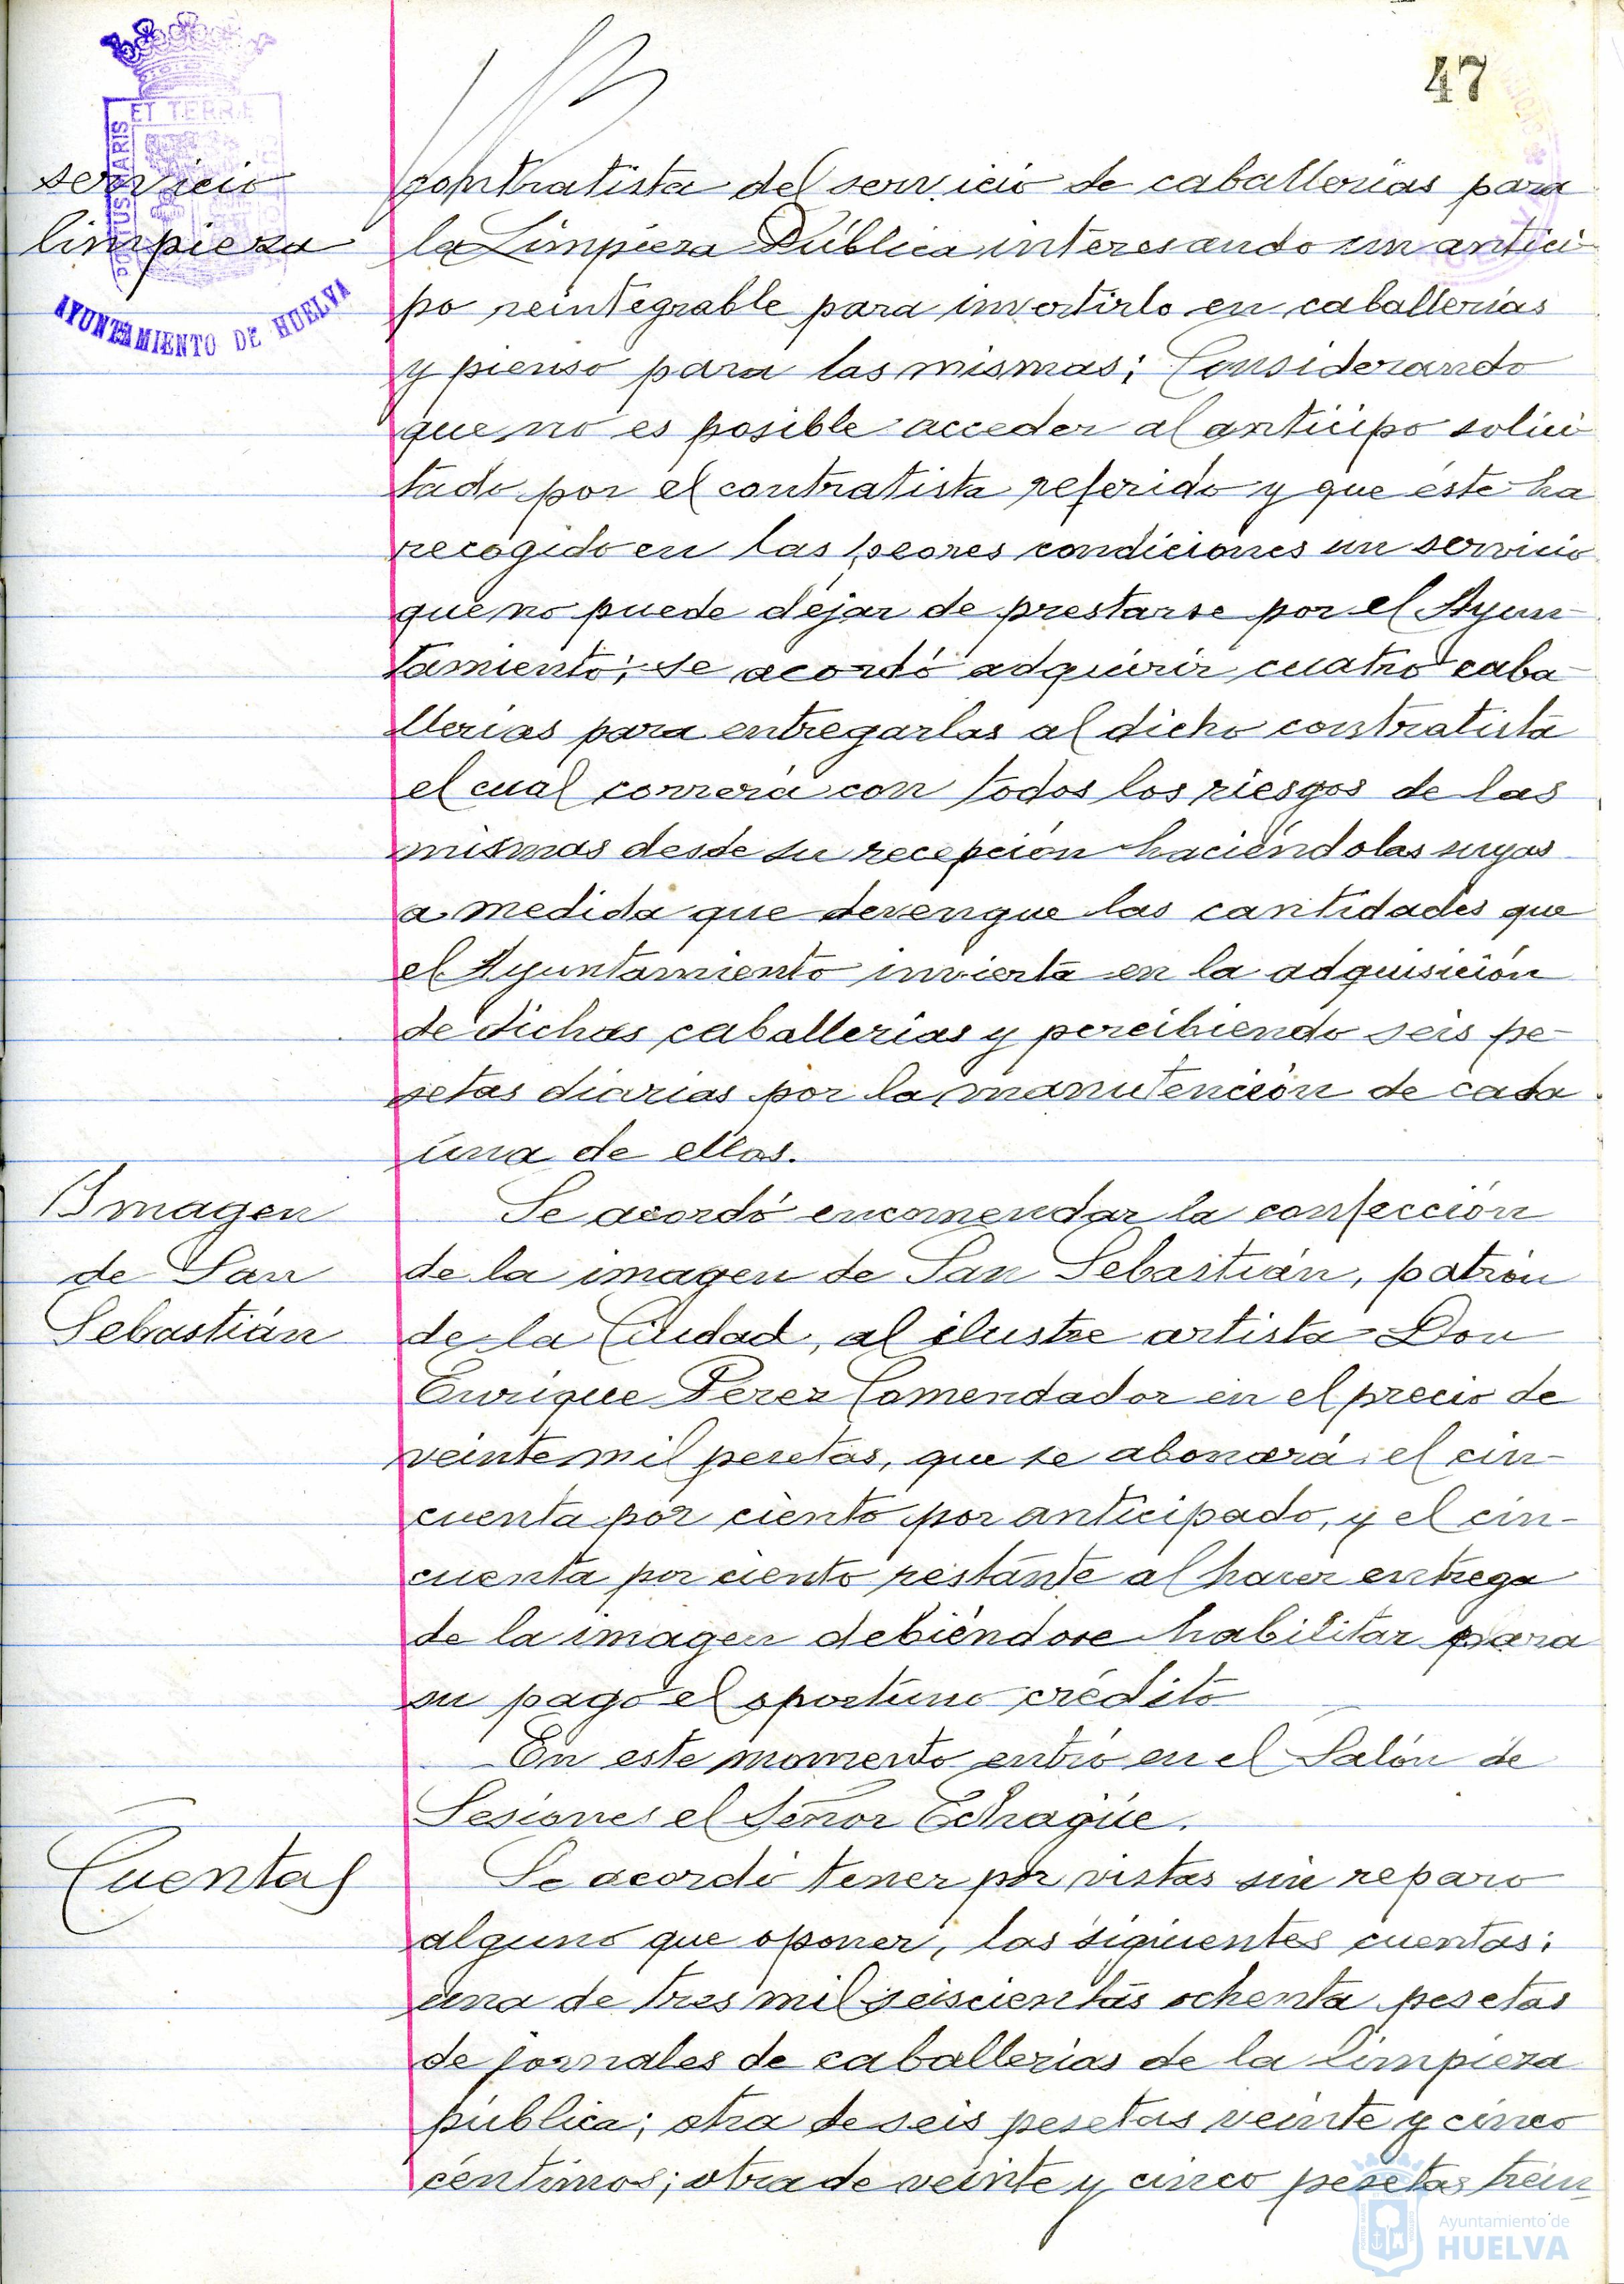 47
servicio
limpieza
PORTUS MARIS
ET TERRÆ
AYUNTAMIENTO DE HUELVA
contratista del servicio de caballerías para
la Limpieza Pública interesando un antici-
po reintegrable para invertirlo en caballerías
y pienso para las mismas; Considerando
que no es posible acceder al anticipo solici-
tado por el contratista referido y que éste ha
recogido en las peores condiciones un servicio
que no puede dejar de prestarse por el Ayun-
tamiento; se acordó adquirir cuatro caba-
llerías para entregarlas al dicho contratista
el cual correrá con todos los riesgos de las
mismas desde su recepción haciéndolas suyas
a medida que devengue las cantidades que
el Ayuntamiento invierta en la adquisición
de dichas caballerías y percibiendo seis pe-
setas diarias por la manutención de cada
una de ellas.
Imagen
de San
Sebastián
Se acordó encomendar la confección
de la imagen de San Sebastián, patrón
de la Ciudad, al ilustre artista Don
Enrique Pérez Comendador en el precio de
veinte mil pesetas, que se abonará el cin-
cuenta por ciento por anticipado, y el cin-
cuenta por ciento restante al hacer entrega
de la imagen debiéndose habilitar para
su pago el oportuno crédito
En este momento entró en el Salón de
Sesiones el Señor Echagüe.
Cuentas
Se acordó tener por vistas sin reparo
alguno que oponer, las siguientes cuentas:
una de tres mil seiscientas ochenta pesetas
de jornales de caballerías de la limpieza
pública; otra de seis pesetas veinte y cinco
céntimos; otra de veinte y cinco pesetas trein-
Ayuntamiento de
HUELVA